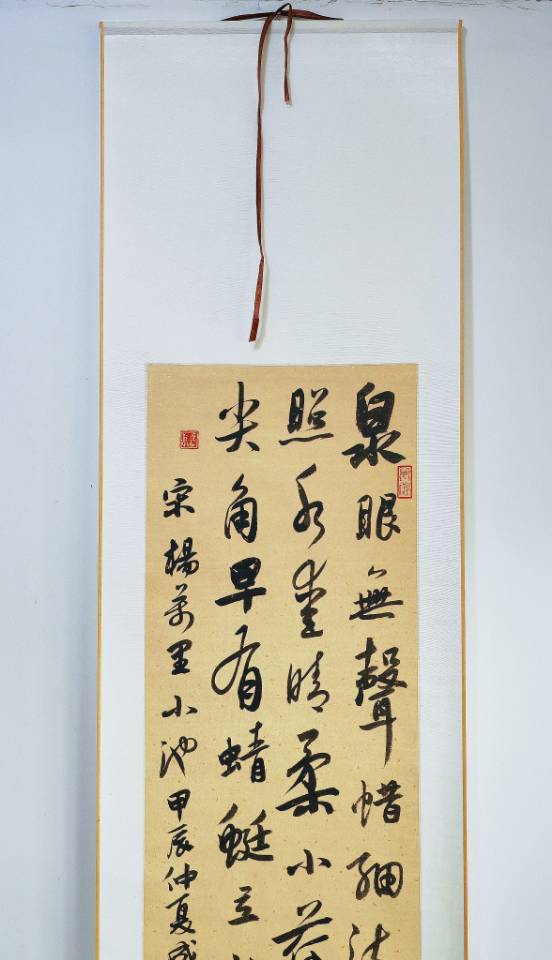 泉眼無聲惜細流
照水愛晴柔小荷
尖角早有蜻蜓立
宋楊萬里小池甲辰仲夏